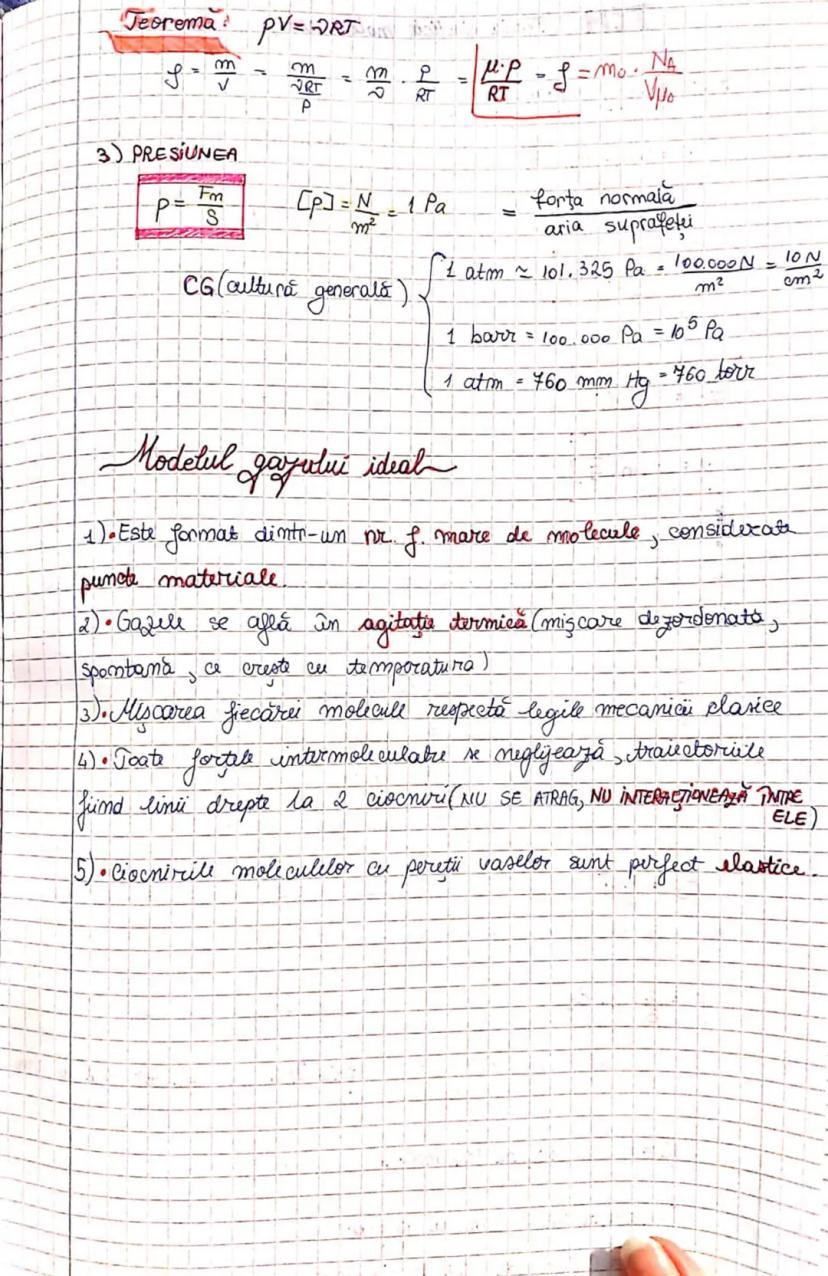 Teoremă: pV = νRT
ρ = m/V = m/(νRT/p) = m/ν · p/RT = μ·p/RT = ρ = m₀ · N_A/Vμ₀
3) PRESIUNEA
p = Fm/S [p] = N/m² = 1 Pa = forța normală/aria suprafeței
CG (cultură generală)
1 atm ≃ 101.325 Pa = 100.000N/m² = 10N/cm²
1 barr = 100.000 Pa = 10⁵ Pa
1 atm = 760 mm Hg = 760 torr
Modelul gazului ideal
1) • Este format dintr-un nr. f. mare de molecule, considerate
puncte materiale.
2) • Gazele se află în agitație termică (mișcare dezordonată,
spontană, ce crește cu temporatura)
3) • Mișcarea fiecărei molecule respectă legile mecanicii clasice
4) • Toate forțele intermoleculare se neglijează, traiectoriile
fiind linii drepte la 2 ciocniri (NU SE ATRAG, NU INTERACȚIONEAZĂ ÎNTRE
ELE)
5) • Ciocnirile moleculelor cu pereții vaselor sunt perfect elastice.